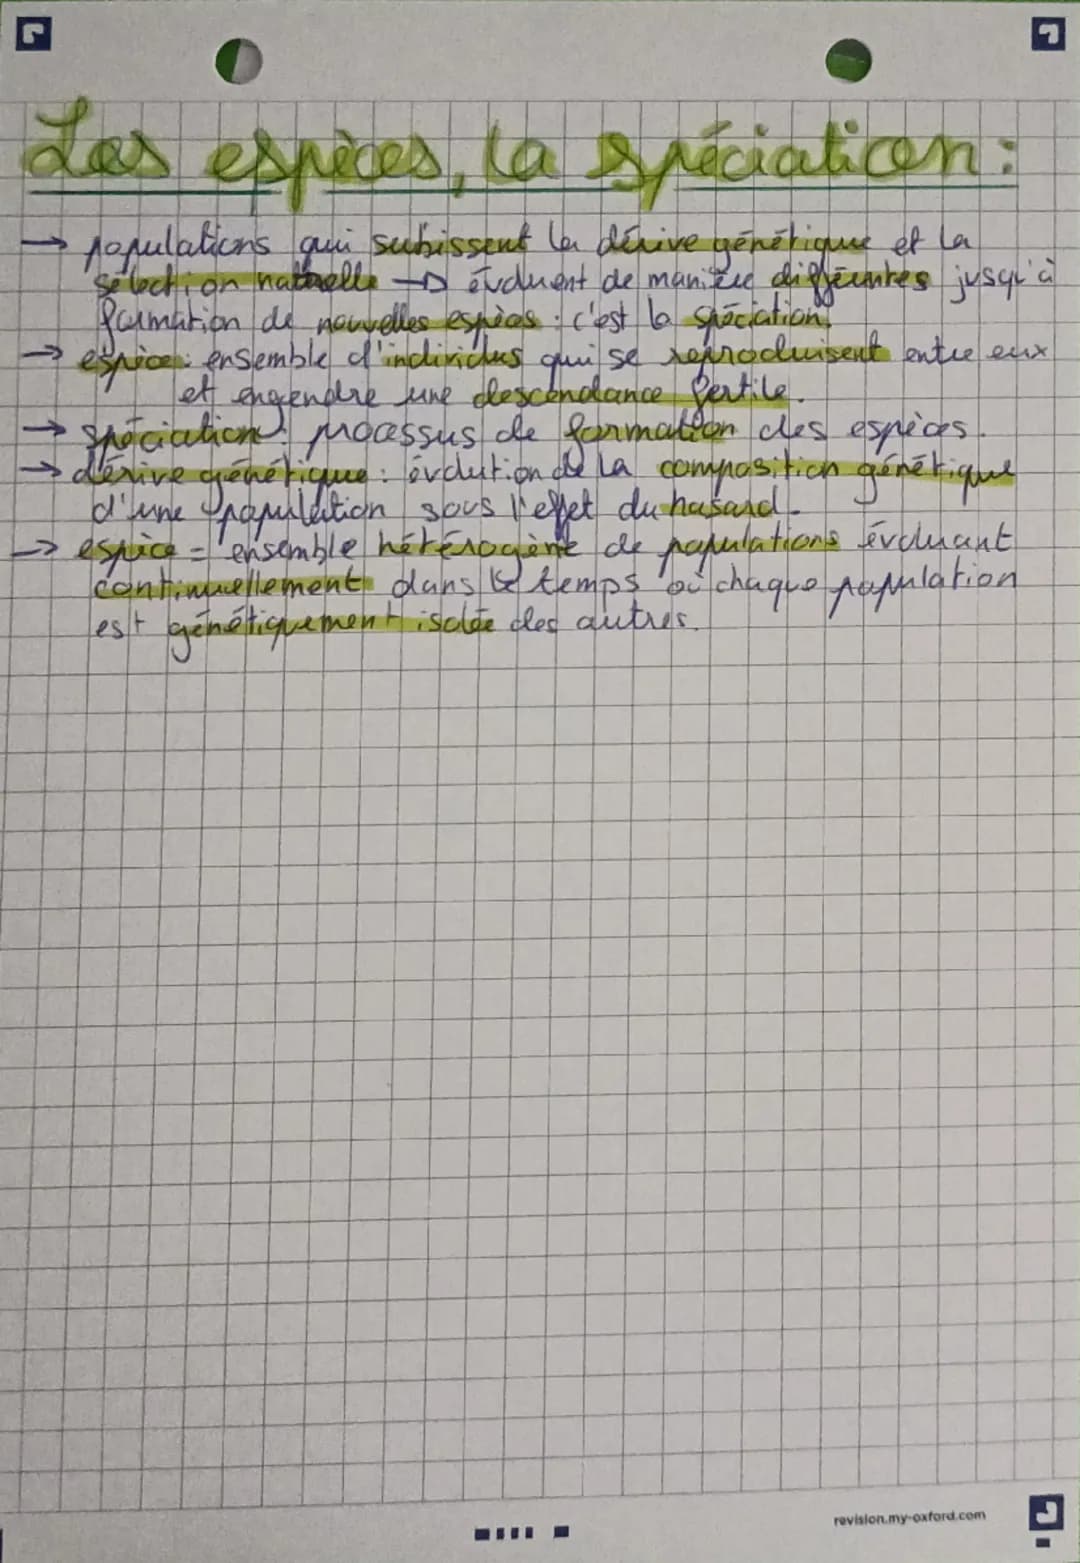 Les espèces, la spéciation :
→ populations qui subissent la dérive génétique et la
sélection naturelle → évoluent de manière différentes jusqu'à
formation de nouvelles espèces : c'est la spéciation.
→ espèce : ensemble d'individus qui se reproduisent entre eux
et engendre une descendance fertile.
→ spéciation : processus de formation des espèces.
→ dérive génétique : évolution de la composition génétique
d'une population sous l'effet du hasard.
→ espèce = ensemble hétérogène de populations évoluant
continuellement dans le temps où chaque population
est génétiquement isolée des autres.
revision.my-oxford.com